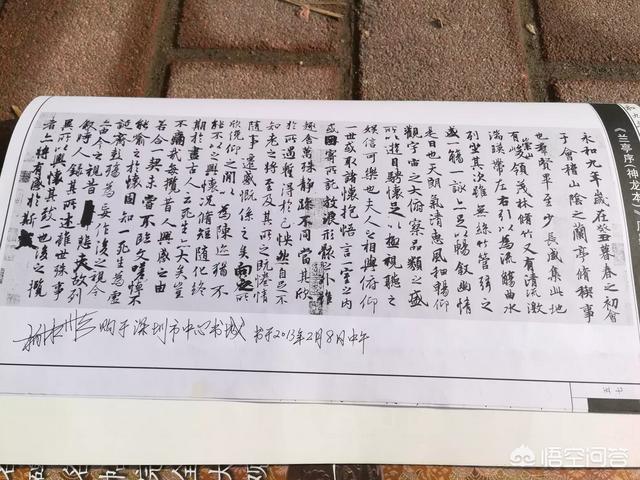 《兰亭序(神龙本)》
永和九年歲在癸丑暮春之初會
于會稽山陰之蘭亭脩稧事
也羣賢畢至少長咸集此地
有崇山峻領茂林脩竹又有清流激
湍暎帶左右引以為流觴曲水
列坐其次雖無絲竹管弦之
盛一觴一詠亦足以暢敘幽情
是日也天朗氣清惠風和暢仰
觀宇宙之大俯察品類之盛
所以遊目騁懷足以極視聽之
娛信可樂也夫人之相與俯仰
一世或取諸懷抱悟言一室之內
或因寄所託放浪形骸之外雖
趣舍萬殊靜躁不同當其欣
於所遇蹔得於己怏然自足不
知老之將至及其所之既惓情
隨事遷感慨係之矣向之所
欣俛仰之閒以為陳迹猶不
能不以之興懷況脩短隨化終
期於盡古人云死生亦大矣豈
不痛哉每攬昔人興感之由
若合一契未嘗不臨文嗟悼不
能喻之於懷固知一死生為虛
誕齊彭殤為妄作後之視今
亦由今之視昔悲夫故列
敘時人錄其所述雖世殊事
異所以興懷其致一也後之攬
者亦將有感於斯文
购于深圳市中心书城 书于2013年2月8日中午
悟空问答